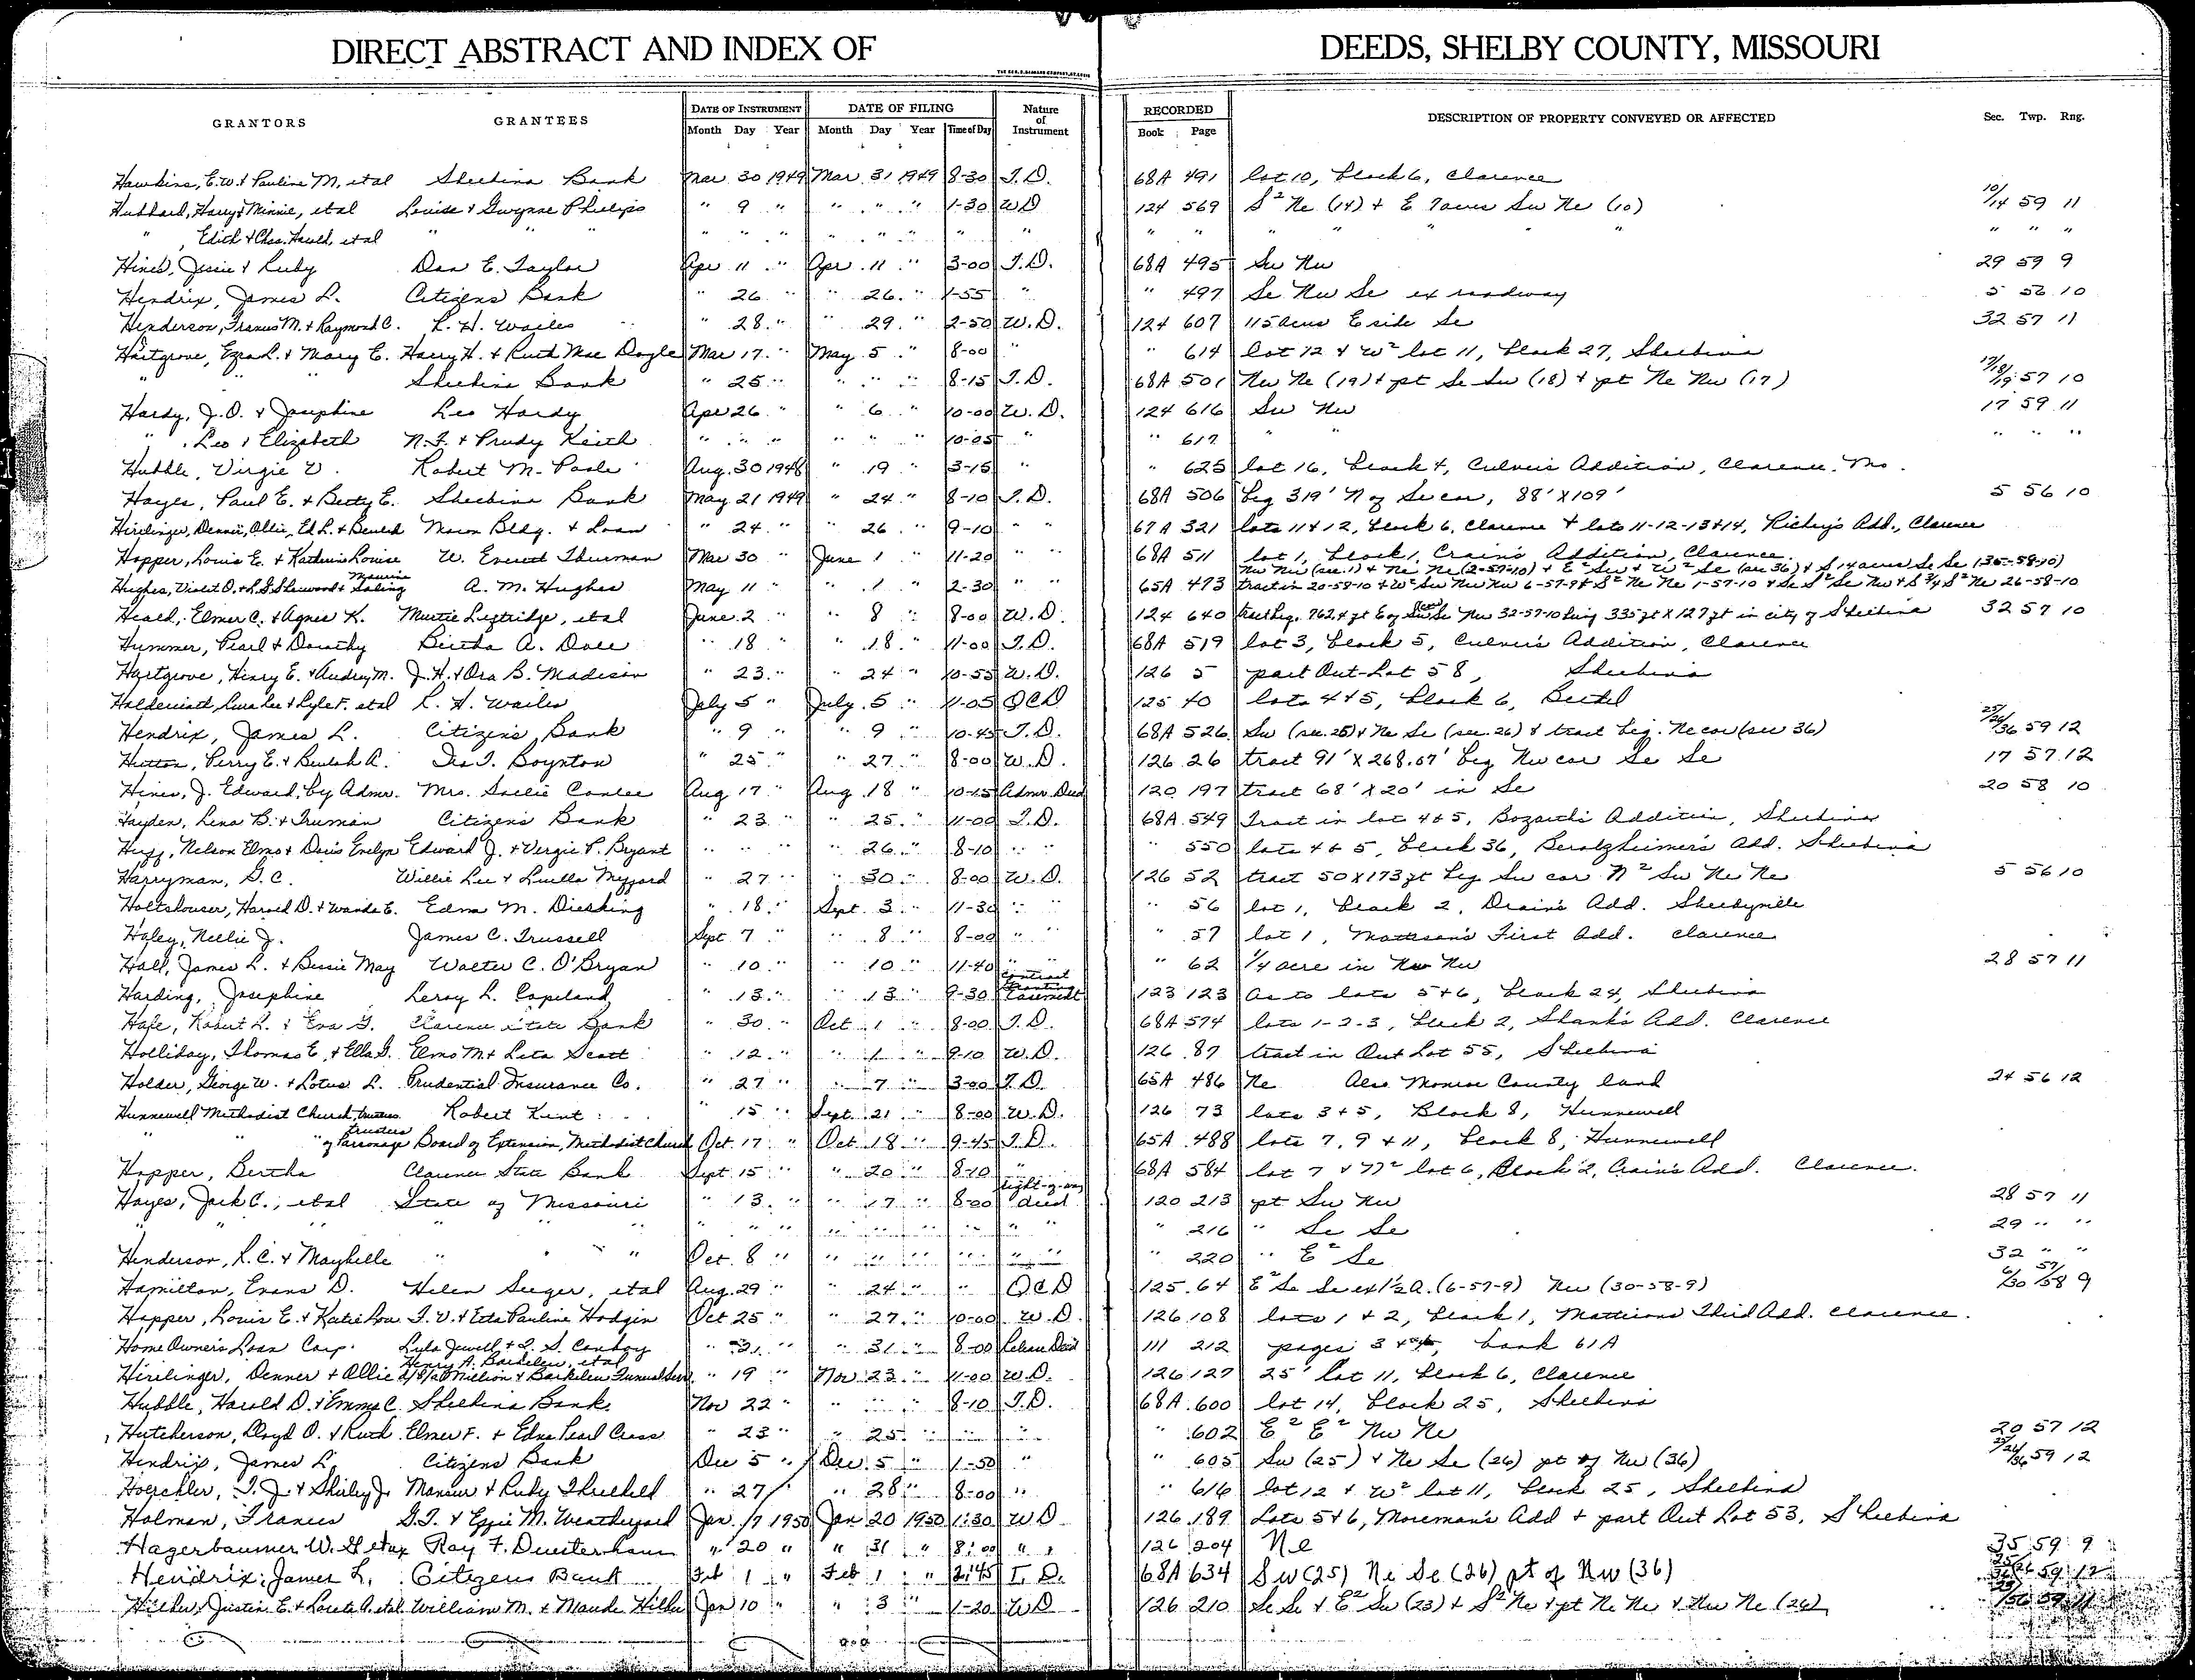 DIRECT ABSTRACT AND INDEX OF DEEDS, SHELBY COUNTY, MISSOURI
GRANTORS GRANTEES DATE OF INSTRUMENT DATE OF FILING Nature of Instrument RECORDED DESCRIPTION OF PROPERTY CONVEYED OR AFFECTED Sec. Twp. Rng.
Month Day Year Month Day Year Time of Day Book Page
Hawkins, E.W. & Pauline M. et al Shelbina Bank Mar 30 1949 Mar 31 1949 8-30 T.D. 68A 491 lot 10, block 6, Clarence
Hubbard, Harry & Minnie, et al Louise & Gwynne Phillips " 9 " " " " 1-30 WD 124 569 S² Ne (14) & E 7 acres Sw Ne (10) 10/14 59 11
" , Edith & Chas. Hawld, et al " " " " " " " " " " " " " " " " " " " " "
Hines, Jessie & Ruby Dan E. Taylor Apr 11 " Apr 11 " 3-00 T.D. 68A 495 Sw Nw 29 59 9
Hendrix, James L. Citizens Bank " 26 " " 26 " 1-55 " " 497 Se Nw Se ex roadway 5 56 10
Henderson, Francis M. & Raymond C. L. H. Wailes " 28 " " 29 " 2-50 W.D. 124 607 115 acres E side Se 32 57 11
Hartgrove, Ezra L. & Mary E. Harry H. & Ruth Mae Doyle Mar 17 " May 5 " 8-00 " " 614 lot 12 & W² lot 11, block 27, Shelbina
" " " Shelbina Bank " 25 " " " " 8-15 T.D. 68A 501 Nw Ne (19) & pt Se Sw (18) & pt Ne Nw (17) 17/18/19 57 10
Hardy, J.O. & Josephine Leo Hardy Apr 26 " " 6 " 10-00 W.D. 124 616 Sw Nw 17 59 11
" , Leo & Elizabeth N.F. & Prudy Keith " " " " " " 10-05 " " 617 " " " " "
Hubble, Virgie V. Robert M. Poole Aug. 30 1948 " 19 " 3-15 " " 625 lot 16, block 4, Culver's Addition, Clarence, Mo.
Hayes, Paul E. & Betty E. Shelbina Bank May 21 1949 " 24 " 8-10 T.D. 68A 506 beg 319' N of Se cor, 88' X 109' 5 56 10
Hirrlinger, Denner, Ollie, Ed L. & Beulah Macon Bldg. & Loan " 24 " " 26 " 9-10 " " 67A 321 lots 11 & 12, block 6, Clarence & lots 11-12-13 & 14, Richey's Add., Clarence
Hopper, Louis E. & Katherine Louise W. Everett Thurman Mar 30 " June 1 " 11-20 " " 68A 511 lot 1, block 1, Crain's Addition, Clarence.
Nw Nw (sec. 1) & Ne Ne (2-57-10) & E² Sw & W² Se (sec 36) & S 14 acres Se Se (35-58-10)
Hughes, Violet O. & L.G. Sherwood & Maurine Saling A. M. Hughes May 11 " " 1 " 2-30 " " 65A 473 tract in 20-58-10 & W² Sw Nw Nw 6-57-9 & S² Ne Ne 1-57-10 & Se S² Se Nw & S ¾ S² Ne 26-58-10
Heald, Elmer C. & Agnes K. Murtie Lightridge, et al June 2 " " 8 " 8-00 W.D. 124 640 tract beg. 762.4 ft E of Sw cor Se Nw 32-57-10 being 335 ft X 127 ft in city of Shelbina 32 57 10
Hummer, Pearl & Dorothy Bertha A. Dale " 18 " 18 " 11-00 T.D. 68A 519 lot 3, block 5, Culver's Addition, Clarence
Hartgrove, Henry E. & Audrey M. J.H. & Ora B. Madison " 23 " " 24 " 10-55 W.D. 126 5 part Out-Lot 58, Shelbina
Lura Lee & Lyle F. et al L. H. Wailes July 5 " July 5 " 11-05 QCD 125 40 lots 4 & 5, block 6, Bethel
Hendrix, James L. Citizens Bank " 9 " " 9 " 10-45 T.D. 68A 526 Sw (sec. 25) & Ne Se (sec. 26) & tract beg. Ne cor (sec 36) 25/26/36 59 12
Hutton, Perry E. & Beulah A. Ira T. Boynton " 25 " " 27 " 8-00 W.D. 126 26 tract 91' X 268.07' beg Nw cor Se Se 17 57 12
Hines, J. Edward, by Admr. Mrs. Sallie Conlee Aug 17 " Aug 18 " 10-15 Admr. Deed 120 197 tract 68' X 20' in Se 20 58 10
Hayden, Lena B. & Truman Citizens Bank " 23 " " 25 " 11-00 T.D. 68A 549 Tract in lot 4 & 5, Bozarth's Addition, Shelbina
Huff, Nelson Elmo & Doris Evelyn Edward J. & Vergie P. Bryant " " " " 26 " 8-10 " " " 550 lots 4 & 5, block 36, Berolzheimer's Add. Shelbina
Harryman, G.C. Willie Lee & Luella Mefford " 27 " " 30 " 8-00 W.D. 126 52 tract 50 X 173 ft beg Sw cor N² Sw Ne Ne 5 56 10
Holtshouser, Harold D. & Wanda E. Edna M. Diesking " 18 " Sept 3 " 11-30 " " " 56 lot 1, block 2, Drain's Add. Shelbyville
Haley, Nellie J. James C. Trussell Sept 7 " " 8 " 8-00 " " " 57 lot 1, Matteson's First Add. Clarence
Hall, James L. & Bessie May Walter C. O'Bryan " 10 " " 10 " 11-40 " " " 62 ¼ acre in Nw Nw 28 57 11
Harding, Josephine Leroy L. Copeland " 13 " " 13 " 9-30 Contract Granting Easement 123 123 As to lots 5 & 6, block 24, Shelbina
Hale, Robert L. & Eva G. Clarence State Bank " 30 " Oct 1 " 8-00 T.D. 68A 574 lots 1-2-3, block 2, Shank's Add. Clarence
Holliday, Thomas E. & Ella G. Elmo M. & Leta Scott " 12 " " 1 " 9-10 W.D. 126 87 tract in Out Lot 55, Shelbina
Holder, George W. & Lotus L. Prudential Insurance Co. " 27 " " 7 " 3-00 T.D. 65A 486 Ne Also Monroe County land 24 56 12
Hunnewell Methodist Church, trustees Robert Kent " 15 " Sept 21 " 8-00 W.D. 126 73 lots 3 & 5, Block 8, Hunnewell
" " " trustees of Parsonage Board of Extension, Methodist Church Oct. 17 " Oct 18 " 9-45 T.D. 65A 488 lots 7, 9 & 11, block 8, Hunnewell
Hopper, Bertha Clarence State Bank Sept 15 " " 20 " 8-10 " 68A 584 lot 7 & N² lot 6, Block 2, Crain's Add. Clarence.
Hayes, Jack C., et al State of Missouri " 13 " " 17 " 8-00 Right-of-way deed 120 213 pt Sw Nw 28 57 11
" " " " " " " " " " " " " " " " 216 " Se Se 29 " "
Henderson, L.C. & Maybelle " " " Oct. 8 " " " " " " " " 220 " E² Se 32 " "
Hamilton, Evans D. Helen Seeger, et al Aug. 29 " " 24 " " QCD 125 64 E² Se Se ex 1½ a. (6-57-9) Nw (30-58-9) 6/30 57/58 9
Hopper, Louis E. & Katie Lou T.V. & Etta Pauline Hodgin Oct 25 " " 27 " 10-00 W.D. 126 108 lots 1 & 2, block 1, Mattison's Third Add. Clarence.
Home Owner's Loan Corp. Lyla Jewell & L.S. Conboy " 31 " " 31 " 8-00 Release Deed 111 212 pages 3 & book 61A
Henry A. Barkelew, et al
Hirrlinger, Denner & Allie d/b/a Million & Barkelew Funeral Serv. " 19 " Nov 23 " 11-00 W.D. 126 127 25' lot 11, block 6, Clarence
Hubble, Harold D. & Emma C. Shelbina Bank Nov 22 " " " " 8-10 T.D. 68A 600 lot 14, block 25, Shelbina
Hutcherson, Lloyd O. & Ruth Elmer F. & Edna Pearl Cross " 23 " " 25 " " " " 602 E² E² Nw Ne 20 57 12
Hendrix, James L. Citizens Bank Dec 5 " Dec. 5 " 1-50 " " 605 Sw (25) & Ne Se (26) pt of Nw (36) 25/26/36 59 12
Hoerchler, T.J. & Shirley J. Mansur & Ruby Threlkeld " 27 " 28 " 8-00 " " 616 lot 12 & W² lot 11, block 25, Shelbina
Holman, Frances G.T. & Effie M. Weatherford Jan. 17 1950 Jan 20 1950 1:30 WD 126 189 Lots 5 & 6, Moreman's Add & part Out Lot 53, Shelbina
Hagerbaumer W.G. et ux Ray F. Duesterhaus " 20 " " 31 " 8:00 " " 126 204 Ne 35 59 9
Hendrix, James L. Citizens Bank Feb 1 " Feb 1 " 2:45 T.D. 68A 634 Sw (25) Ne Se (26) pt of Nw (36) 25/26/36 59 12
Hilbe, Justin E. & Loreta A. et al William M. & Maude Jan 10 " " 3 " 1-20 WD 126 210 Se Se & E² Sw (23) & S² Ne & pt Ne Ne & Nw Ne (26) 59 11